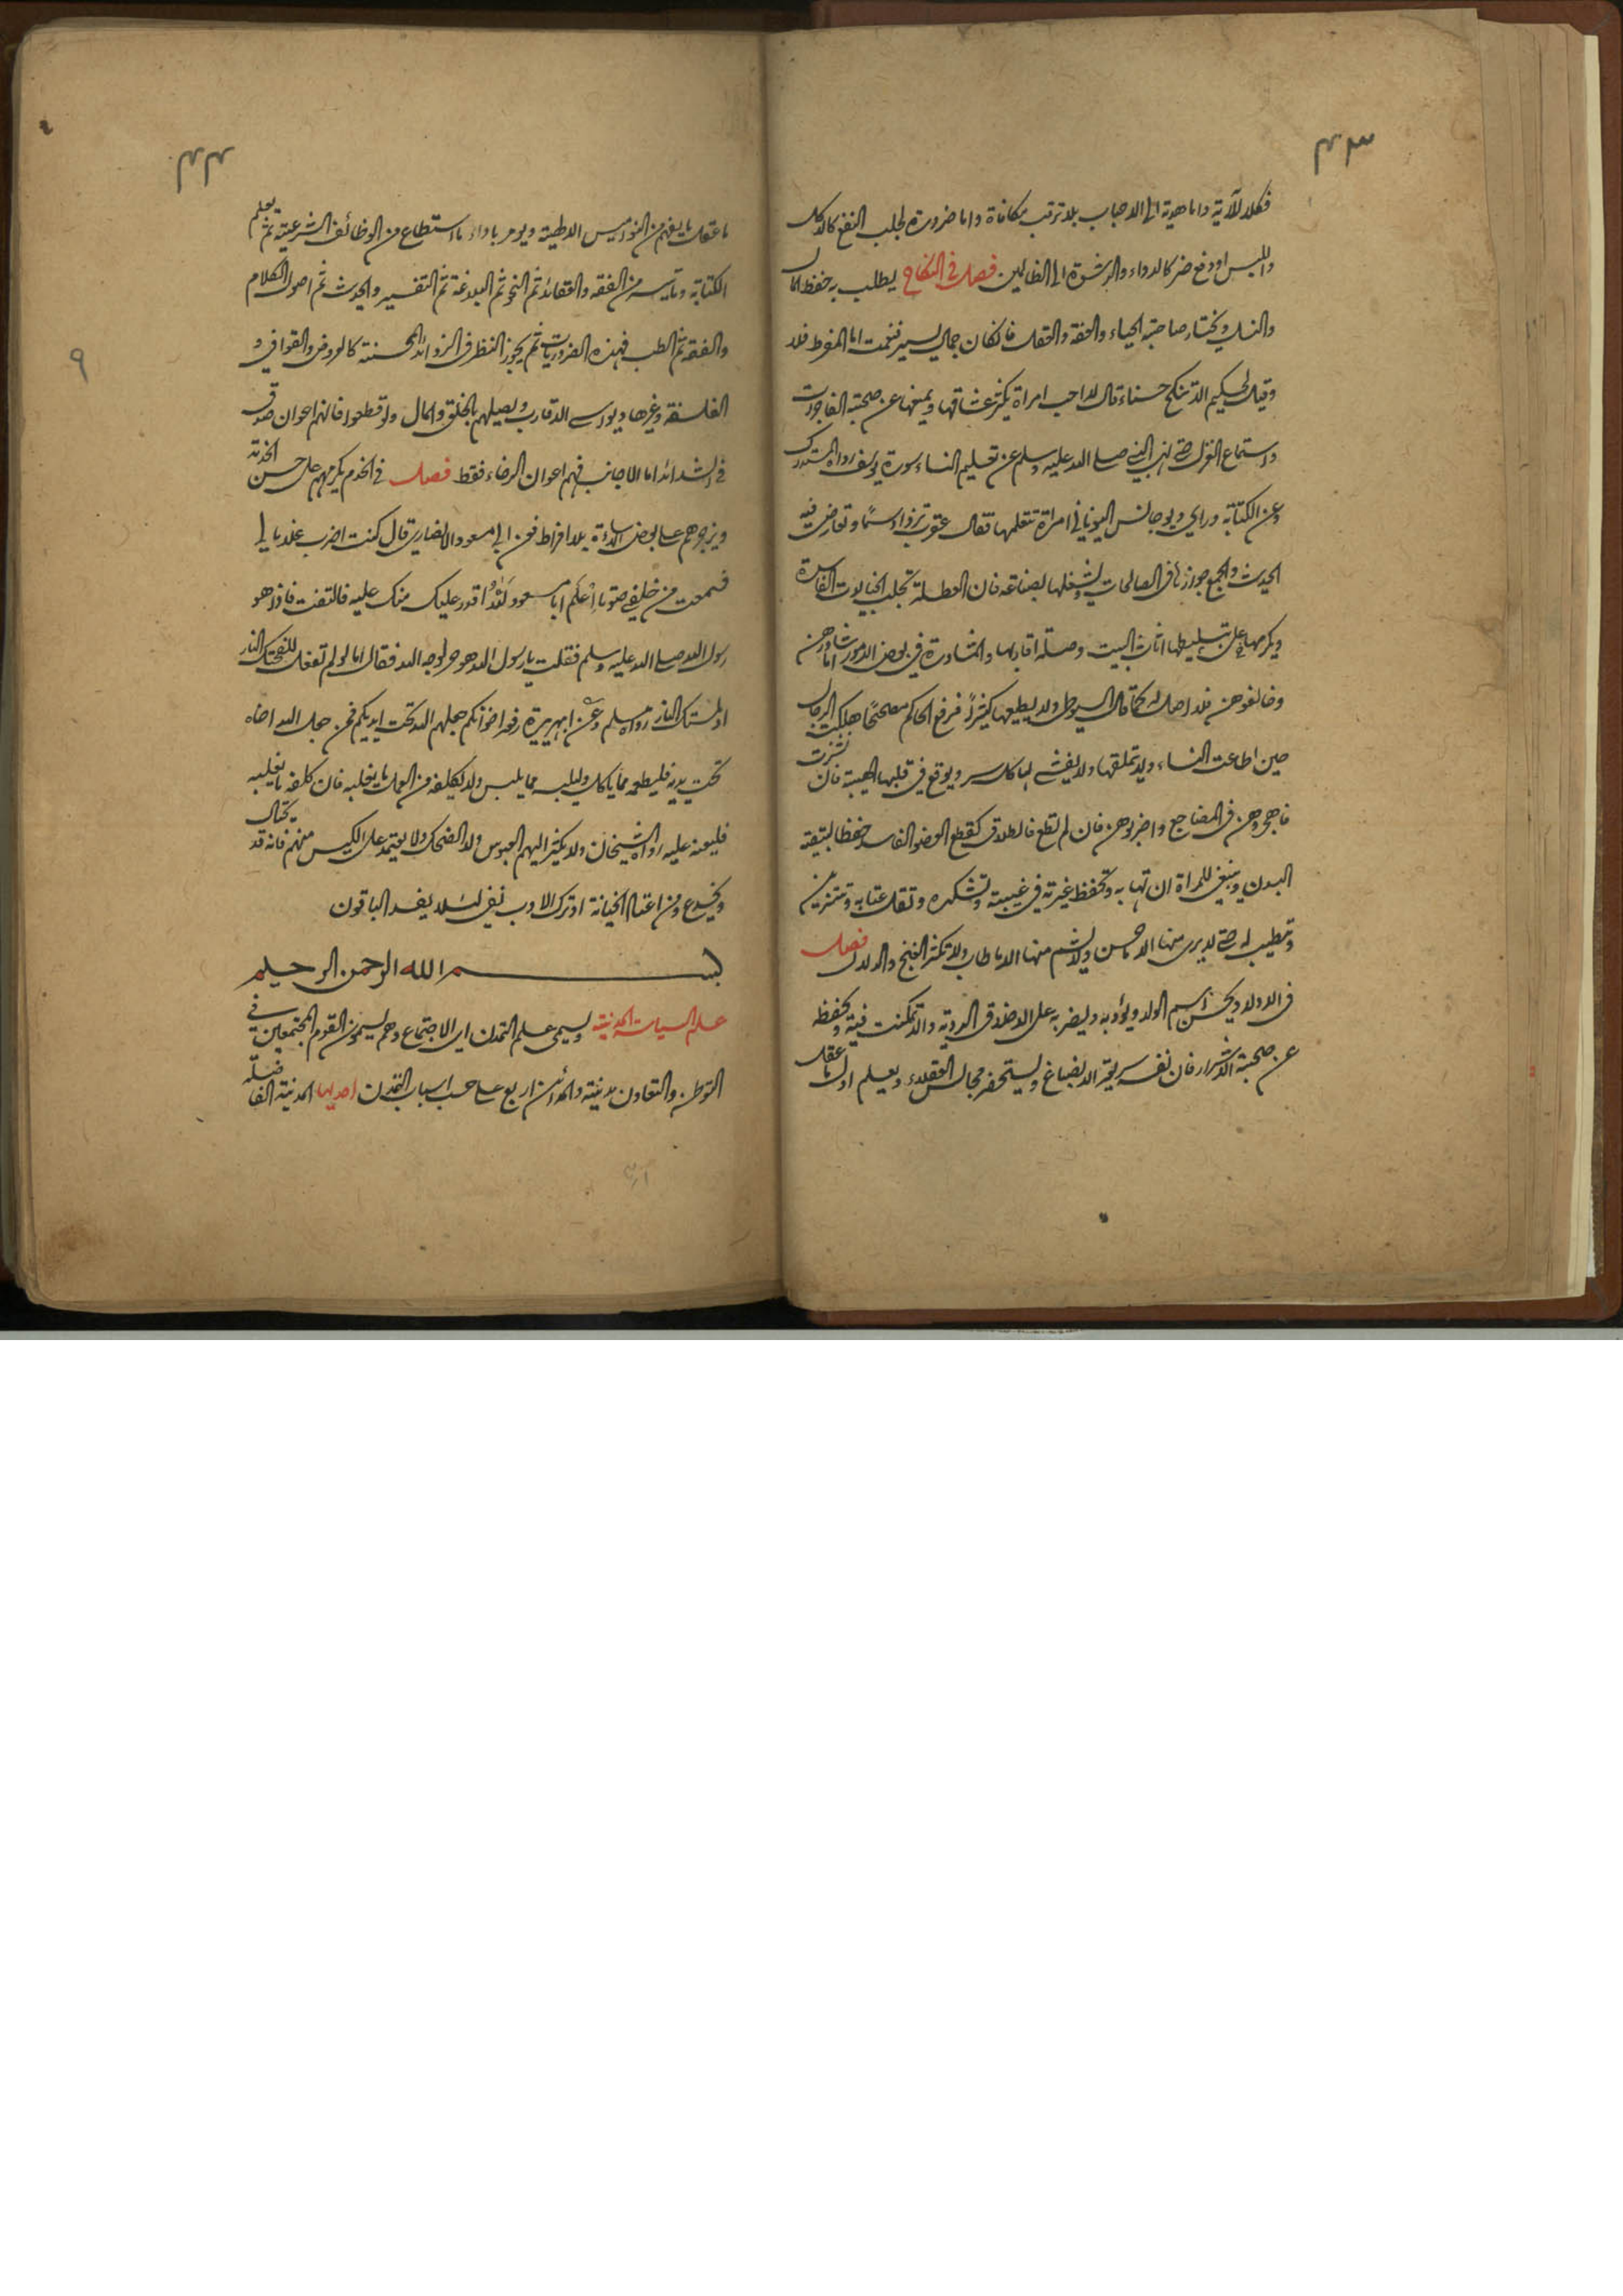 ۴۳
فكالهدية واما هوية الى الاحباب بلا ترتب مكافاة واما ضرورة لجلب النفع كالاكل
واللبس او دفع ضر كالدواء والرشوة الى الظالمين فصل في النكاح يطلب به حفظ المال
والنسل ويختار صاحبة الحياء والعفة والعقل فان كان جمال يسير فنعمت اما المفرط فلا
وقيل لحكيم الا تنكح حسناء قال لا احب امراة يكثر عشاقها ويمنعها عن صحبة الفاجرات
واستماع الغزل حتى نهى النبي صلى الله عليه وسلم عن تعليم النساء سورة يوسف رواه المستدرك
وعن الكتابة وراى ديوجانس اليوناني امراة تتعلمها فقال عقرب تزداد سما وتعارض فيه
الحديث والجمع جوازها في الصالحات ويشغلها بصناعة فان العطلة تجلب الخيالات الفاسدة
ويكرمها على تسليطها اثاث البيت وصلة اقاربها والمشاورة في بعض الامور اما شاوروهن
وخالفوهن فلا اصل له كما قال السيوطي ولا يطيعها كثيرا فرفع الحاكم مصححا هلكت الرجال
حين اطاعت النساء ولا يتملقها ولا يفشى لها كل سر ويوقع في قلبها الهيبة فان نشزت
فاهجروهن في المضاجع واضربوهن فان لم تطع فالطلاق كقطع العضو الفاسد حفظا لبقية
البدن وينبغي للمراة ان تهابه وتحفظ غيرته في غيبته وتشكره وتقل عتابه وتتزين
وتطيب له حتى لا يرى منها الا حسن ولا يشم منها الا ما طاب ولا تكثر الغنج والدلال فصل
في الاولاد ويحسن اسم الولد ويؤدبه وليضربه على الاخلاق الردية والا تمكنت فيه ويحفظه
عن صحبة الاشرار فان نفسه سريعة الانصباغ ويستحضر مجالس العقلاء ويعلم اول ما عقل
۴۴
ما عقل ما يفهم من النواميس الالهية ويومر باداء ما استطاع من الوظائف الشرعية ثم يعلم
الكتابة وما تيسر من الفقه والعقائد ثم النحو ثم البلاغة ثم التفسير والحديث ثم اصول الكلام
والفقه ثم الطب فهذه الضروريات ثم يجوز النظر في الزوائد المحسنة كالعروض والقوافي و
الفلسفة وغيرها ويواسي الاقارب ويصيلهم بالخلق والمال ولو قطعوا فانهم اعوان صدق
في الشدائد اما الاجانب فهم اعوان الرخاء فقط فصل في الخدم يكرمهم على حسن الخدمة
ويزجرهم على بعض الاساءة بلا افراط فعن ابي مسعود الانصاري قال كنت اضرب غلاما لي
فسمعت من خلفي صوتا اعلم ابا مسعود لله اقدر عليك منك عليه فالتفت فاذا هو
رسول الله صلى الله عليه وسلم فقلت يا رسول الله هو حر لوجه الله فقال اما لو لم تفعل للفحتك النار
او لمستك النار رواه مسلم وعن ابي هريرة رفعه اخوانكم جعلهم الله تحت ايديكم فمن جعل الله اخاه
تحت يديه فليطعمه مما ياكل وليلبسه مما يلبس ولا يكلفه من العمل ما يغلبه فان كلفه ما يغلبه
فليعنه عليه رواه الشيخان ولا يكثر اليهم العبوس ولا الضحك ولا يعتمد على الكيس منهم فانه قد يحتال
ويخدع ومن اعتاد الخيانة او ترك الادب نفى لئلا يفسد الباقون
بسم الله الرحمن الرحيم
علم السياسة المدنية ويسمى علم التمدن اي الاجتماع وهم يسمون القوم المجتمعين في
التوطن والتعاون مدينة والمدائن اربع على حسب اسباب التمدن احديها المدينة الفاضلة
۹